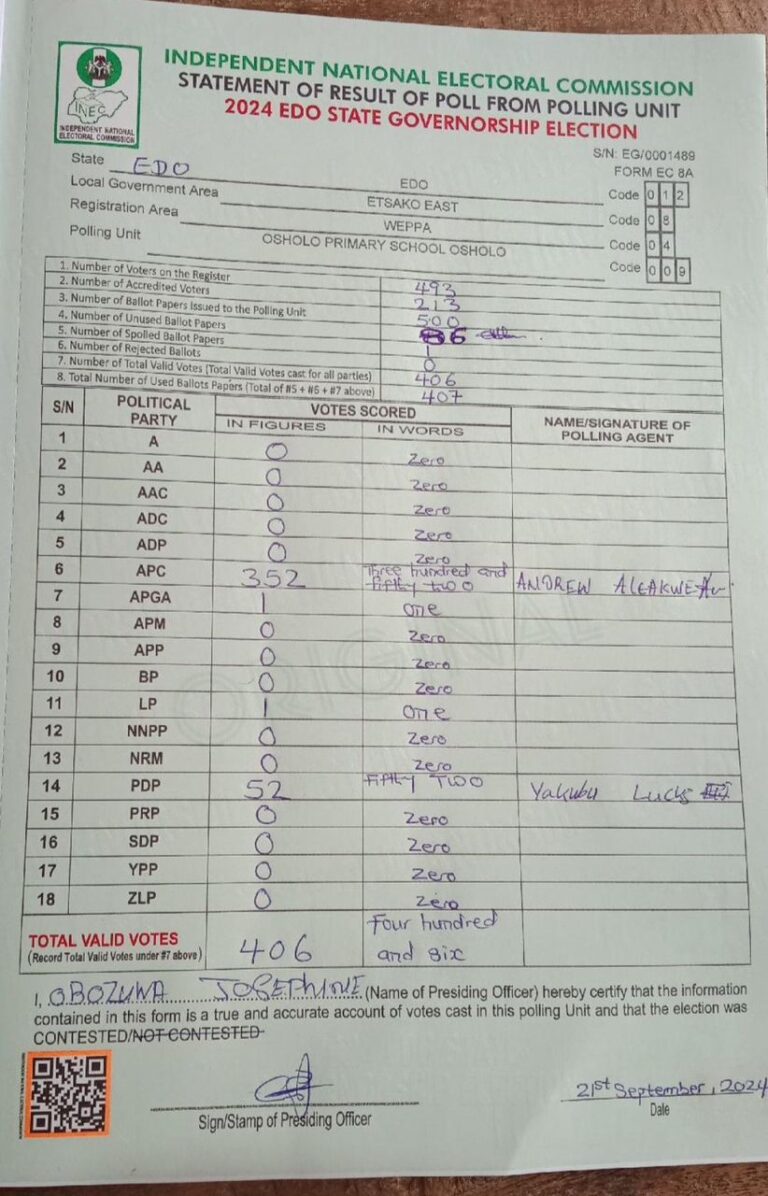 INDEPENDENT NATIONAL ELECTORAL COMMISSION
STATEMENT OF RESULT OF POLL FROM POLLING UNIT
2024 EDO STATE GOVERNORSHIP ELECTION
INEC
INDEPENDENT NATIONAL
ELECTORAL COMMISSION
S/N: EG/0001489
FORM EC 8A
State EDO EDO Code 0 1 2
Local Government Area ETSAKO EAST Code 0 8
Registration Area WEPPA Code 0 4
Polling Unit OSHOLO PRIMARY SCHOOL OSHOLO Code 0 0 9
1. Number of Voters on the Register 493
2. Number of Accredited Voters 213
3. Number of Ballot Papers Issued to the Polling Unit 500
4. Number of Unused Ballot Papers 86
5. Number of Spoiled Ballot Papers 1
6. Number of Rejected Ballots 0
7. Number of Total Valid Votes (Total Valid Votes cast for all parties) 406
8. Total Number of Used Ballots Papers (Total of #5 + #6 + #7 above) 407
S/N POLITICAL PARTY VOTES SCORED NAME/SIGNATURE OF POLLING AGENT
IN FIGURES IN WORDS
1 A 0 Zero
2 AA 0 Zero
3 AAC 0 Zero
4 ADC 0 Zero
5 ADP 0 Zero
6 APC 352 Three hundred and fifty two ANDREW
7 APGA 1 one
8 APM 0 Zero
9 APP 0 Zero
10 BP 0 Zero
11 LP 1 one
12 NNPP 0 Zero
13 NRM 0 Zero
14 PDP 52 Fifty Two Yakubu
15 PRP 0 Zero
16 SDP 0 Zero
17 YPP 0 Zero
18 ZLP 0 Zero
ORIGINAL
TOTAL VALID VOTES 406 Four hundred and six
(Record Total Valid Votes under #7 above)
I, OBOZUWA JOSEPHINE (Name of Presiding Officer) hereby certify that the information
contained in this form is a true and accurate account of votes cast in this polling Unit and that the election was
CONTESTED/NOT CONTESTED
21st September, 2024
Sign/Stamp of Presiding Officer
Date